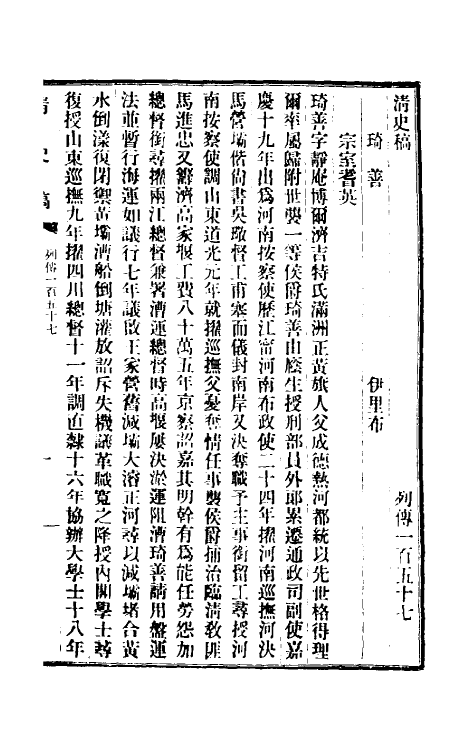 清史稿　列傳一百五十七
琦善　伊里布
宗室耆英
琦善字靜庵博爾濟吉特氏滿洲正黃旗人父成德熱河都統以先世格得理
爾率屬歸附世襲一等侯爵琦善由廕生授刑部員外郎累遷通政司副使嘉
慶十九年出爲河南按察使歷江甯河南布政使二十四年擢河南巡撫河決
馬營壩偕尙書吳璥督工甫塞而儀封南岸又決奪職予主事銜留工尋授河
南按察使調山東道光元年就擢巡撫父憂奪情任事襲侯爵捕治臨清敎匪
馬進忠又濬濟高家堰工費八十萬五年京察詔嘉其明幹有爲能任勞怨加
總督銜尋擢兩江總督兼署漕運總督時高堰屢決淤運阻漕琦善請用盤運
法並暫行海運如議行七年議啟王家營舊減壩大濬正河尋以減壩堵合黃
水倒漾復閉禦黃壩漕船倒塘灌放詔斥失機議革職寬之降授內閣學士尋
復授山東巡撫九年擢四川總督十一年調直隸十六年協辦大學士十八年
清史稿　列傳一百五十七　一